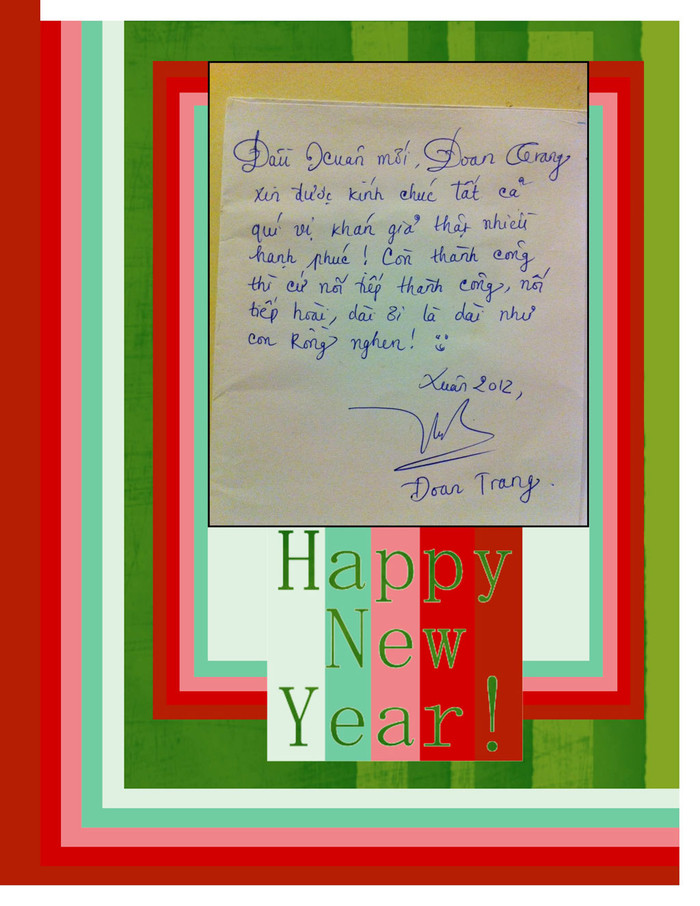 Đầu Xuân mới, Đoan Trang
xin được kính chúc tất cả
quí vị khán giả thật nhiều
hạnh phúc! Còn thành công
thì cứ nối tiếp thành công, nối
tiếp hoài, dài ơi là dài như
con Rồng nghen!
Xuân 2012,
Đoan Trang.
Happy
New
Year!